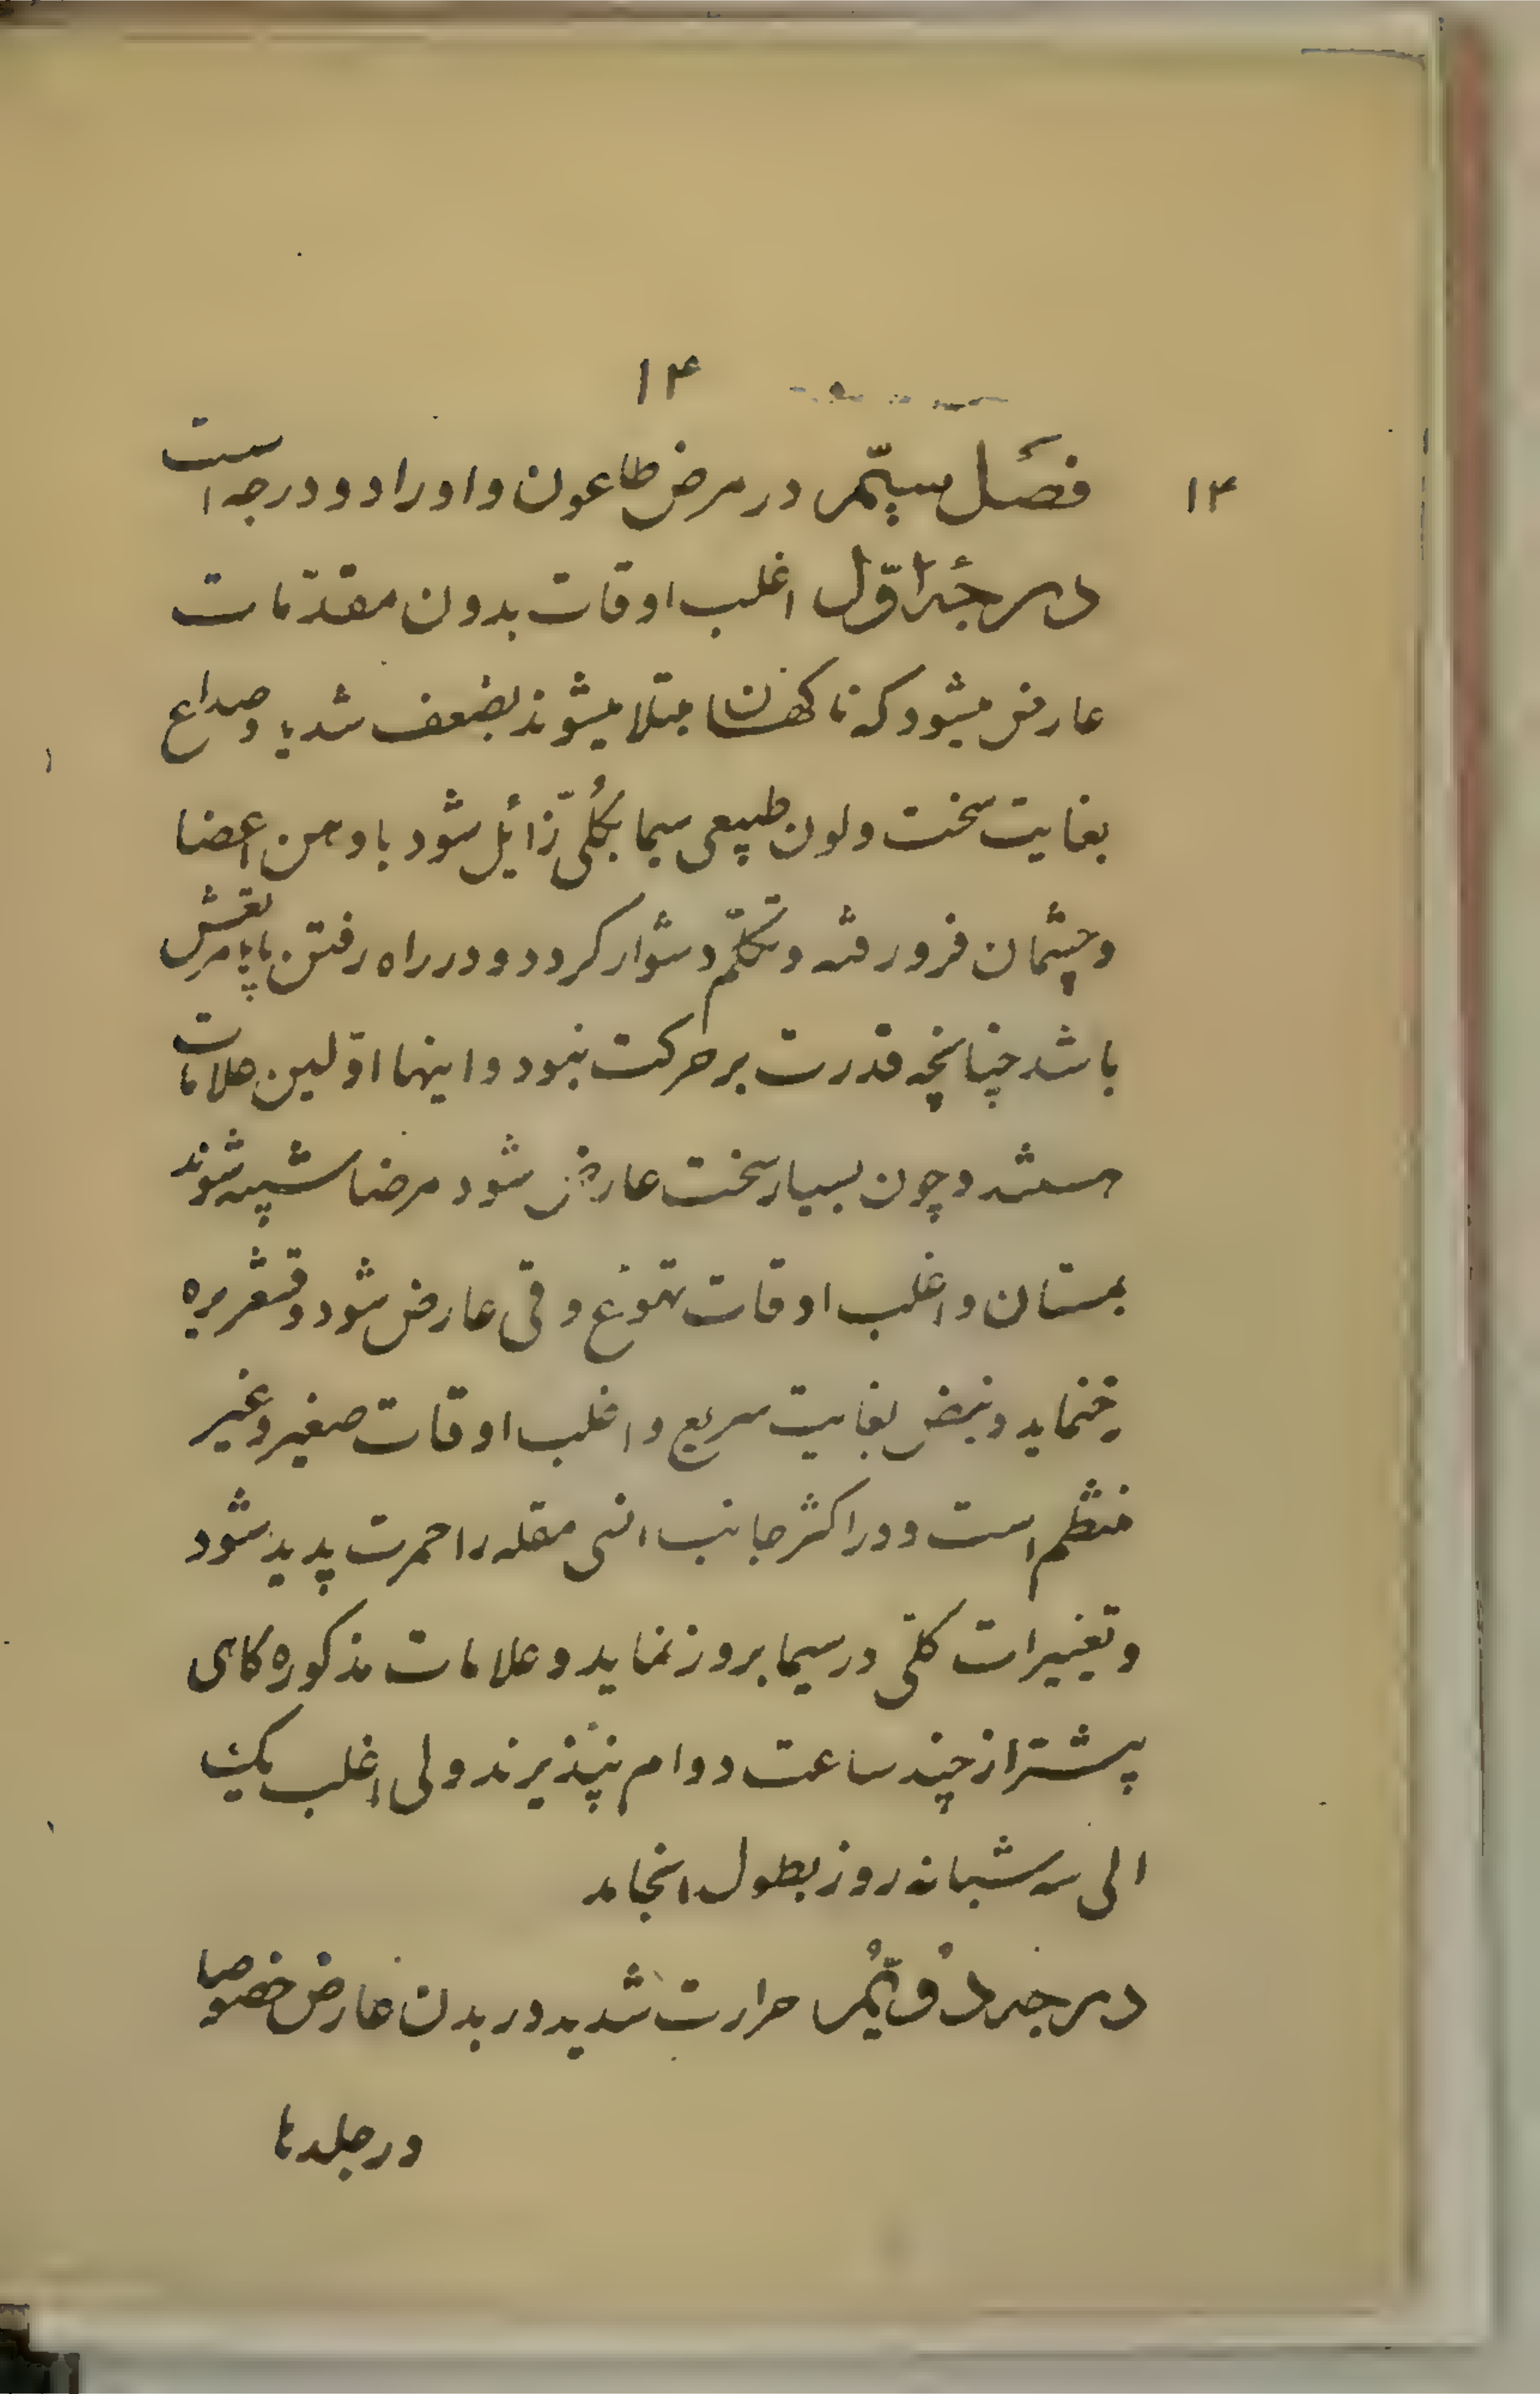 ۱۴
۱۴
فصل سیّم در مرض طاعون و او را دو درجه است
درجهٔ اوّل اغلب اوقات بدون مقدّمات
عارض میشود که ناکهان مبتلا میشوند بضعف شدید و صداع
بغایت سخت و لون طبیعی سیما بکُلّی زائل شود با وهن اعضا
و چشمان فرو رفته و تکلّم دشوار کردد و در راه رفتن پاها مرتعش
باشد چنانچه قدرت بر حرکت نبود و اینها اوّلین علامات
هستند و چون بسیار سخت عارض شود مرضا شبیه شوند
بمستان و اغلب اوقات تهوّع و قی عارض شود و قشعریره
و نبض بغایت سریع و اغلب اوقات صغیر و غیر
منتظم است و در اکثر جانب انسی مقله را حمرت پدید شود
و تغییرات کلّی در سیما بروز نماید و علامات مذکوره کاهی
بیشتر از چند ساعت دوام نپذیرند ولی اغلب یک
الی سه شبانه روز بطول انجامد
درجه دُوّیُم حرارت شدید در بدن عارض خصوصا
در جلد با